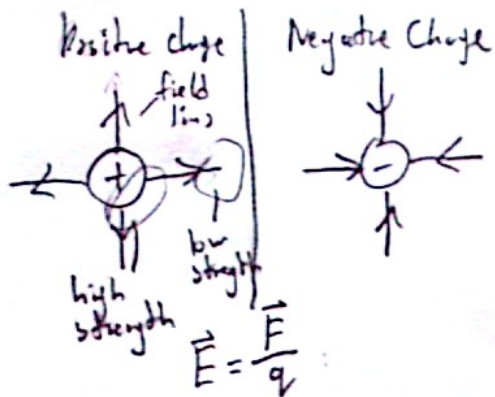 Positive charge
field
lins
+
high
strength
low
stregth
Negative Charge
-
E⃗ = F⃗/q